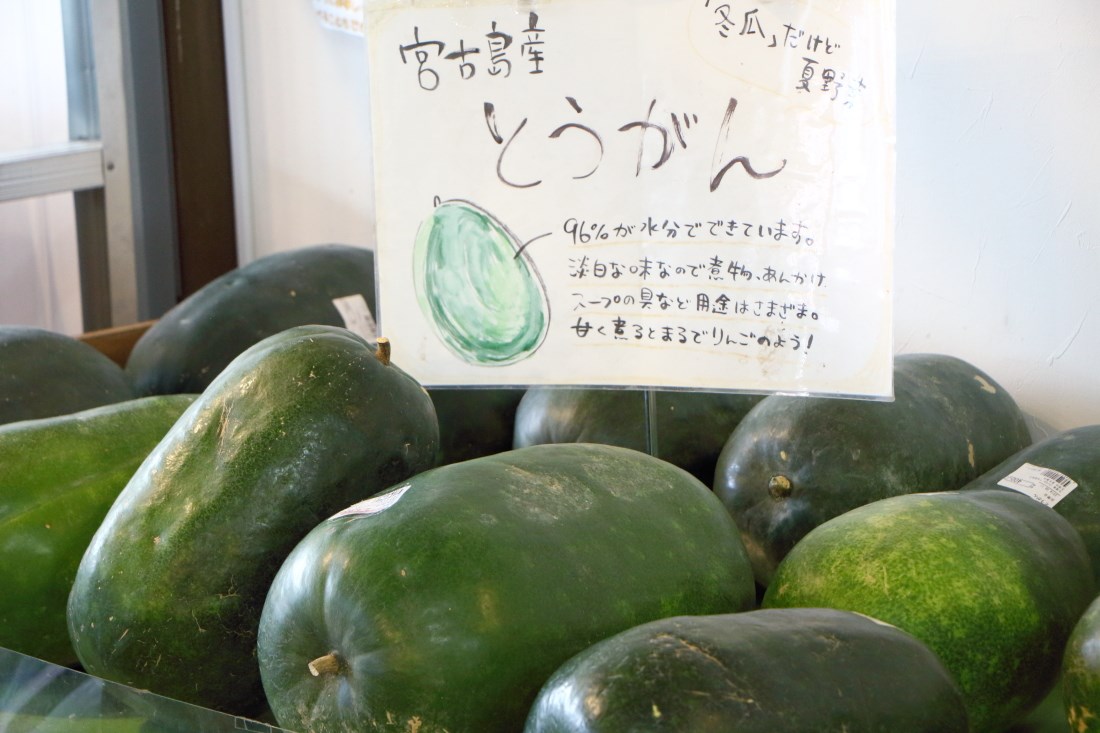 宮古島産
「冬瓜」だけど
夏野菜
とうがん
96%が水分でできています。
淡白な味なので煮物、あんかけ
スープの具など用途はさまざま。
甘く煮るとまるでりんごのよう!